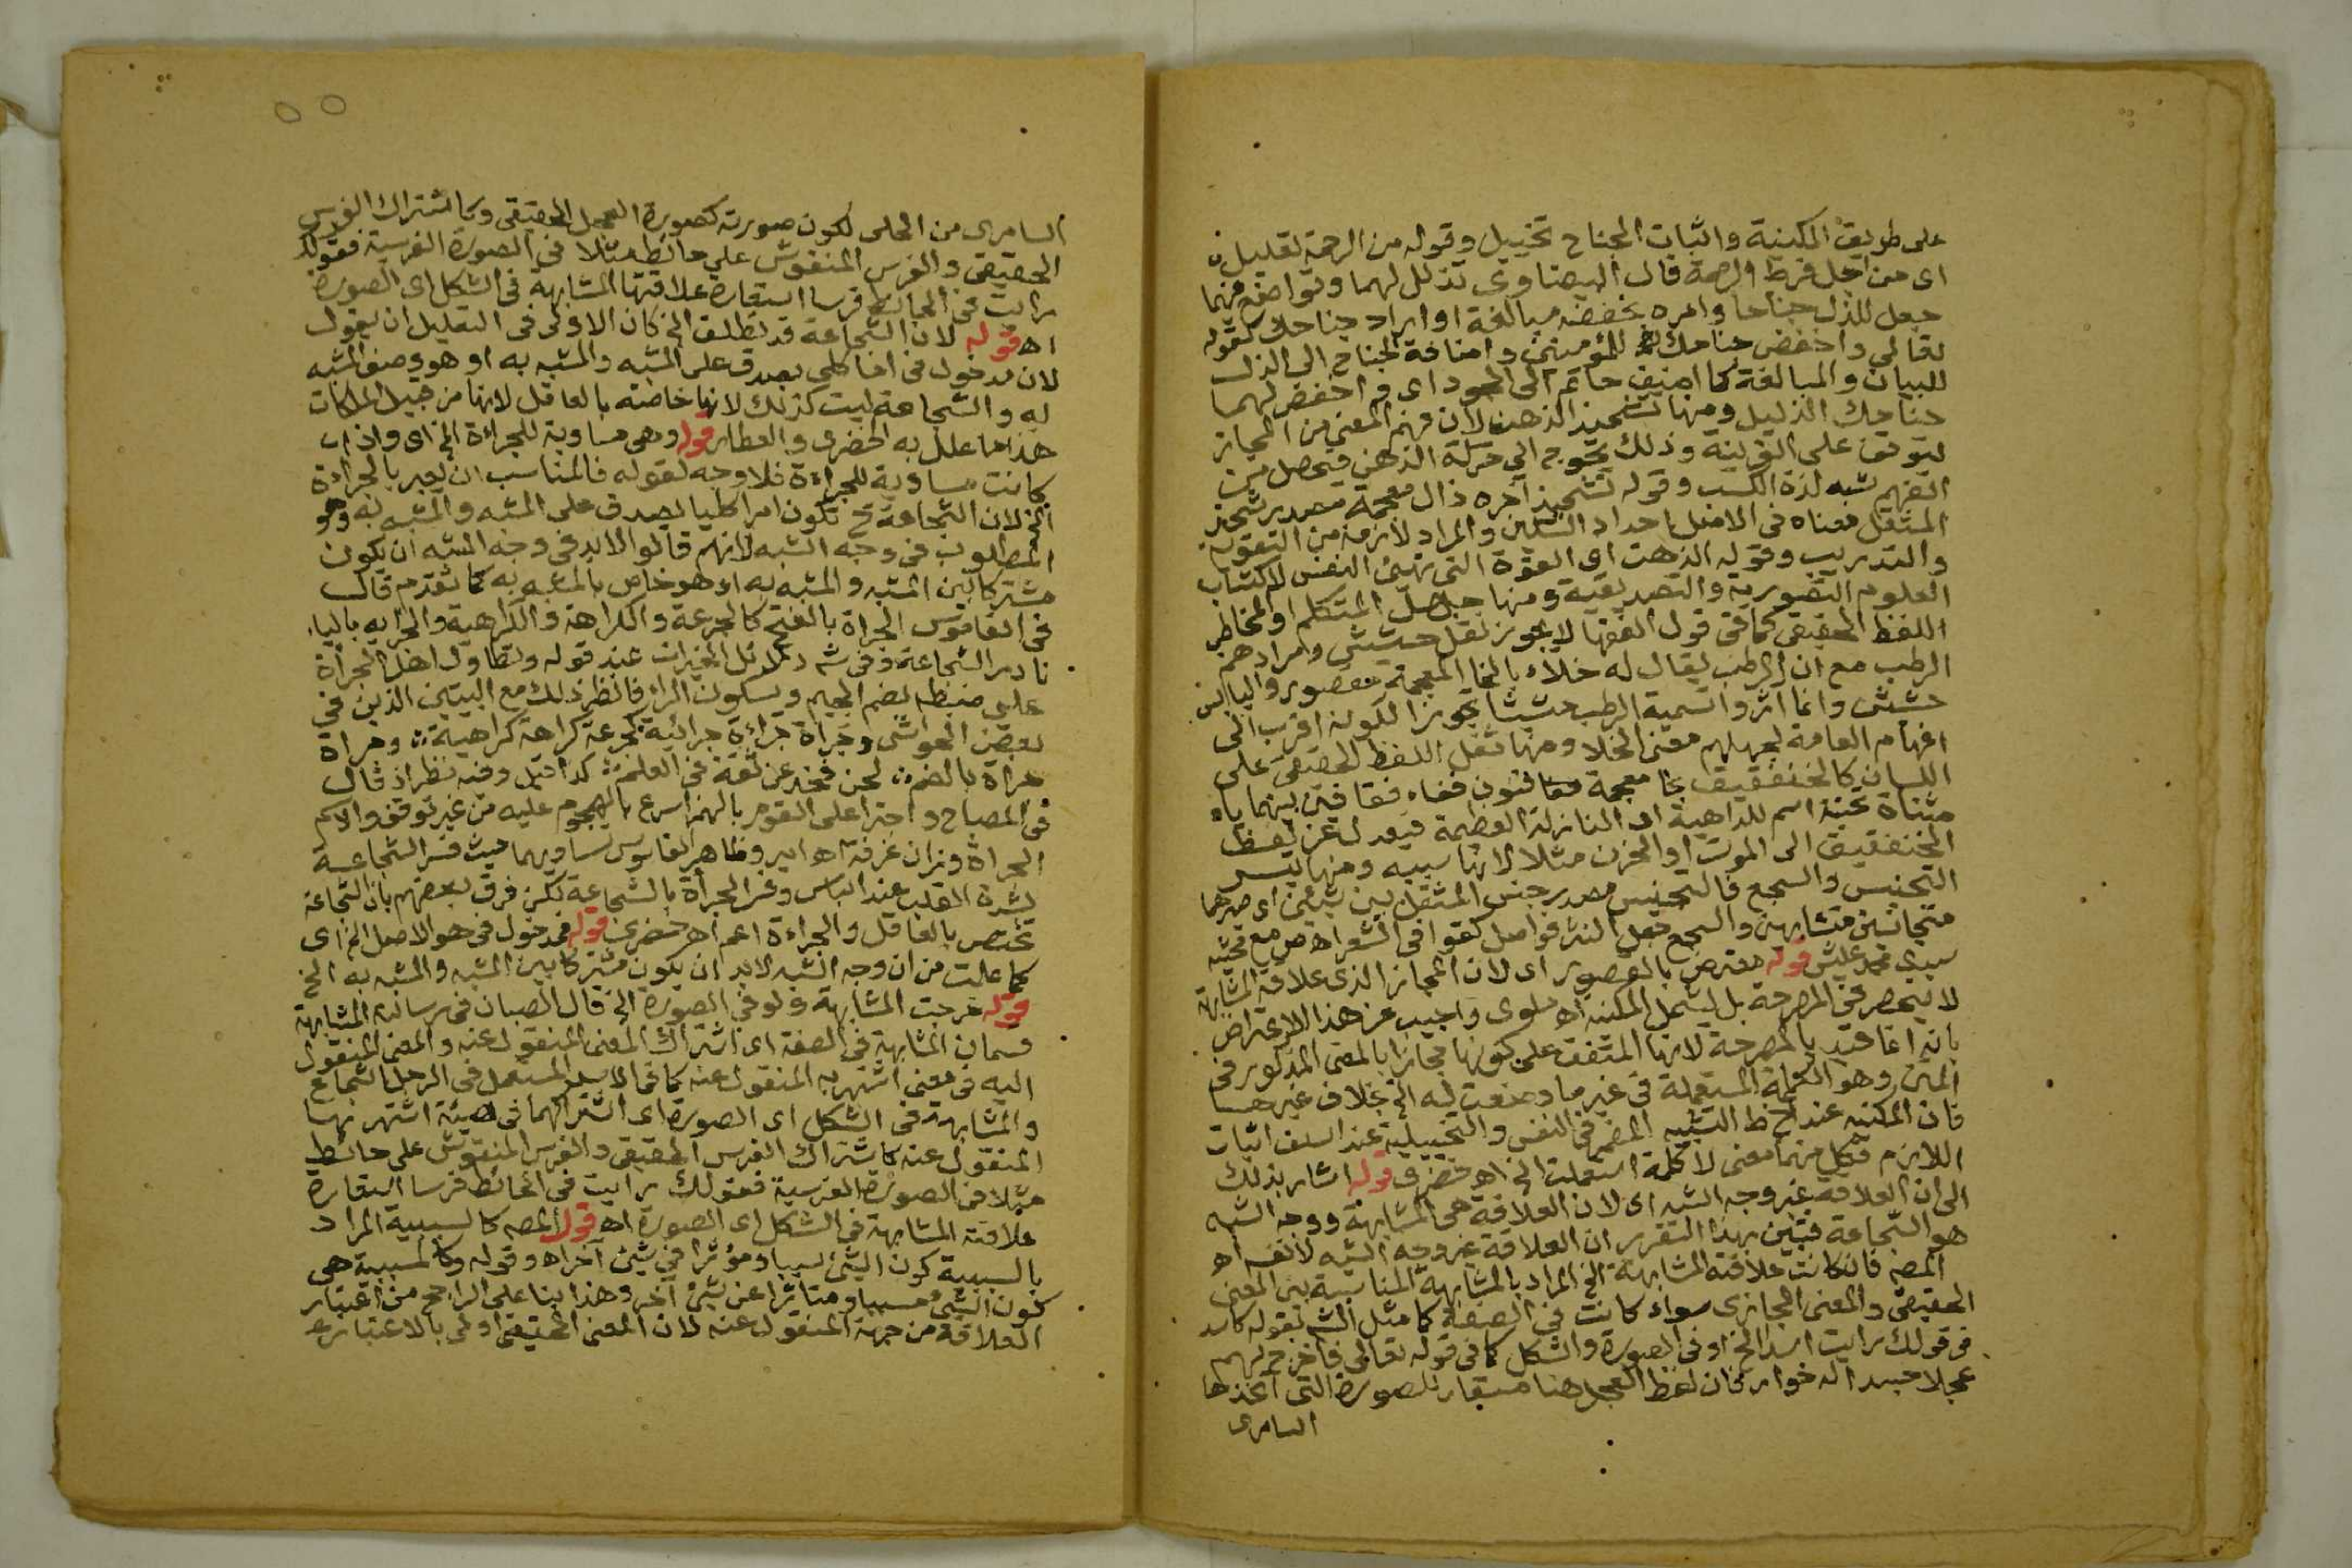 على طريق المكنية واثبات الجناح تخييل وقوله من الرحمة تعليل
اى من اجل فرط الرحمة قال البيضاوى تذلل لهما وتواضع فيهما
جعل للذل جناحا وامره بخفضه مبالغة او اراد جناحك كقوله
تعالى واخفض جناحك للمؤمنين واضافة الجناح الى الذل
للبيان والمبالغة كما اضيف حاتم الى الجود اى واخفض لهما
جناحك الذليل ومنها تشحيذ الذهن لان فهم المعنى من المجاز
يتوقف على القرينة وذلك يحوج الى حركة الذهن فيحصل من
الفهم شبه لذة الكسب وقوله تشحيذ آخره ذال معجمة مصدر شحذ
المثقل معناه فى الاصل احداد السكين والمراد لازمه من التقوية
والتدريب وقوله الذهن اى القوة التى تهيئ النفس لاكتساب
العلوم التصورية والتصديقية ومنها جهل المتكلم او المخاطب
اللفظ الحقيقى كما فى قول الفقها لا يجوز نقل حشيش ومرادهم
الرطب مع ان الرطب يقال له خلاء بالخا المعجمة مقصور واليابس
حشيش وانما آثروا تسمية الرطب حشيشا تجوزا لكونه اقرب الى
افهام العامة لجهلهم معنى الخلا ومنها ثقل اللفظ الحقيقى على
اللسان كالخنفقيق بخا معجمة فنون ففاء فقافين بينهما ياء
مثناة تحتية اسم للداهية اى النازلة العظيمة فيعدل عن لفظ
الخنفقيق الى الموت او الحزن مثلا لانها سببه ومنها تيسر
التجنيس والسجع فالتجنيس مصدر جنس المثقل بين شيئين اى صيرهما
متجانسين متشابهين والسجع جعل النثر فواصل كقوافى الشعر اه ص مع تحته
سيدى محمد عليش قوله معترض بالقصور اى لان المجاز الذى علاقته المشابهة
لا ينحصر فى المصرحة بل يشمل المكنية اه ملوى واجيب عن هذا الاعتراض
بانه انما قيد بالمصرحة لانها المتفق على كونها مجازا بالمعنى المذكور فى
المتن وهو الكلمة المستعملة فى غير ما وضعت له الخ بخلاف غيرها
فان المكنية عند خط التشبيه المضمر فى النفس والتخييلية عند السلف اثبات
اللازم فكل منهما معنى لا كلمة استعملت الخ اه خضرى قوله اشار بذلك
الى ان العلاقة غير وجه الشبه اى لان العلاقة هى المشابهة ووجه الشبه
هو الشجاعة فتبين بهذا التقرير ان العلاقة غير وجه الشبه لا نفسه اه
المصه فان كانت علاقته المشابهة الخ المراد بالمشابهة المناسبة بين المعنى
الحقيقى والمعنى المجازى سواء كانت فى الصفة كما مثل الشه بقوله كاسد
فى قولك رايت اسدا الخ او فى الصورة والشكل كما فى قوله تعالى فاخرج لهم
عجلا جسدا له خوار فان لفظ العجل هنا مستعار للصورة التى اتخذها
السامرى
السامرى من الحلى لكون صورته كصورة العجل الحقيقى وكاشتراك الفرس
الحقيقى والفرس المنقوش على حائط مثلا فى الصورة الفرسية فقولك
رايت فى الحائط فرسا استعارة علاقتها المشابهة فى الشكل اى الصورة
اه قوله لان الشجاعة قد تطلق الخ كان الاولى فى التعليل ان يقول
لان مدخول فى اما كلى يصدق على المشبه والمشبه به او هو وصف المشبه
له والشجاعة ليست كذلك لانها خاصة بالعاقل لانها من قبيل الملكات
هذا ما علل به الخضرى والعطار قوله وهى مساوية للجراءة الخ اى واذا
كانت مساوية للجراءة فلا وجه لقوله فالمناسب ان يعبر بالجراءة
الخ لان الشجاعة ح تكون امرا كليا يصدق على المشبه والمشبه به وهو
المطلوب فى وجه الشبه لانهم قالوا لابد فى وجه الشبه ان يكون
مشتركا بين المشبه والمشبه به او هو خاص بالمشبه به كما تقدم قال
فى القاموس الجراة بالفتح كالجرعة والكراهة والكراهية والجرايه بالياء
نادر الشجاعة وفى شه دلائل الخيرات عند قوله وتطاول اهل الجرأة
على ضبطه بضم الجيم وبسكون الراء فانظر ذلك مع البيتين الذين فى
بعض الحواشى وجرأة جراءة جرائية كجرعة كراهة كراهية وجرأة
جراة بالضم لحن فخذ عن ثقة فى العلم كذا قيل وفيه نظر اذ قال
فى المصباح واجترا على القوم بالهمز اسرع بالهجوم عليه من غير توقف والاسم
الجراة وزان غرفة اه امير وظاهر القاموس تساويهما حيث فسر الشجاعة
بشدة القلب عند الباس وفسر الجرأة بالشجاعة لكن فرق بعضهم بان الشجاعة
تختص بالعاقل والجراءة اعم اه خضرى قوله فمدخول فى هو الاصل الخ اى
كما علمت من ان وجه الشبه لابد ان يكون مشتركا بين المشبه والمشبه به الخ
قوله خرجت المشابهة ولو فى الصورة الخ قال الصبان فى رسالته المشابهة
قسمان المشابهة فى الصفة اى اشتراك المعنى المنقول عنه والمعنى المنقول
اليه فى معنى اشتهر به المنقول عنه كما فى الاسد المستعمل فى الرجل الشجاع
والمشابهة فى الشكل اى الصورة اى اشتراكهما فى هيئة اشتهر بها
المنقول عنه كاشتراك الفرس الحقيقى والفرس المنقوش على حائط
مثلا فى الصورة الفرسية فقولك رايت فى الحائط فرسا استعارة
علاقته المشابهة فى الشكل اى الصورة اه قول المصه كالسببية المراد
بالسببية كون الشئ سببا ومؤثرا فى شئ آخر اه وقوله وكالمسببية هى
كون الشئ مسببا ومتاثرا عن شئ آخر وهذا بنا على الراجح من اعتبار
العلاقة من جهة المنقول عنه لان المعنى الحقيقى اولى بالاعتبار